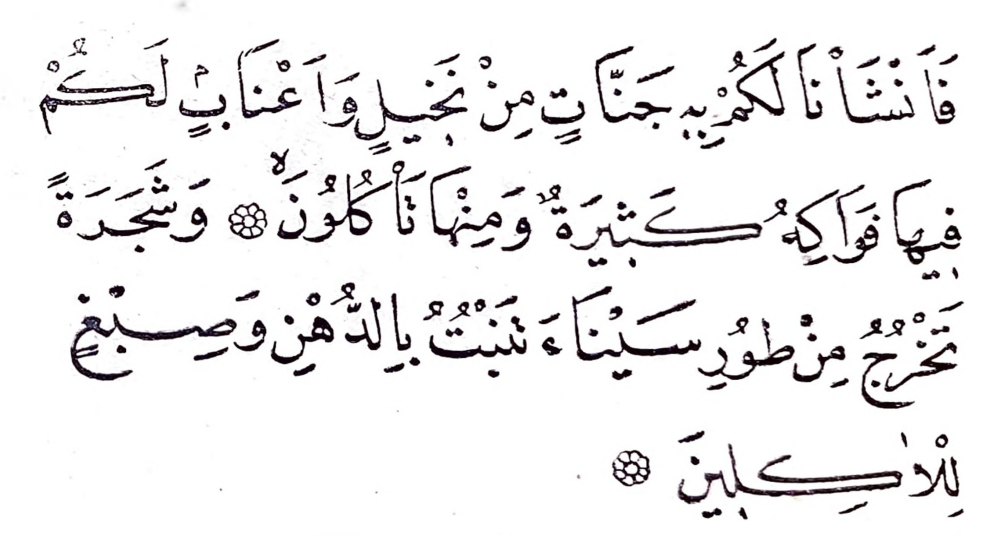 فَاَنْشَاْنَا لَكُمْ بِهٖ جَنَّاتٍ مِنْ نَخٖيلٍ وَاَعْنَابٍۢ لَكُمْ
فٖيهَا فَوَاكِهُ كَثٖيرَةٌ وَمِنْهَا تَاْكُلُونَۙ ۞ وَشَجَرَةً
تَخْرُجُ مِنْ طُورِ سَيْنَاءَ تَنْبُتُ بِالدُّهْنِ وَصِبْغٍ
لِلْاٰكِلٖينَ ۞